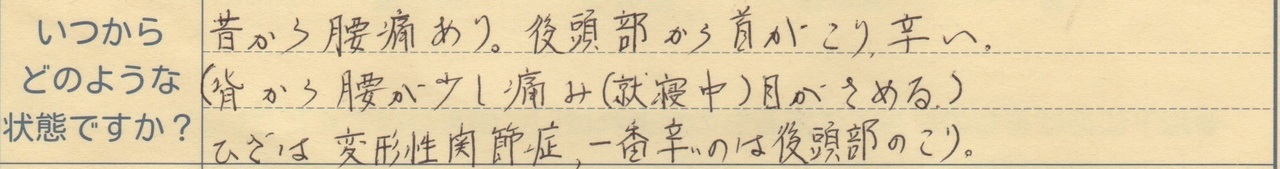 いつから
どのような
状態ですか？
昔から腰痛あり。後頭部から首がこり、辛い。
(背から腰が少し痛み(就寝中)目がさめる。)
ひざは変形性関節症、一番辛いのは後頭部のこり。